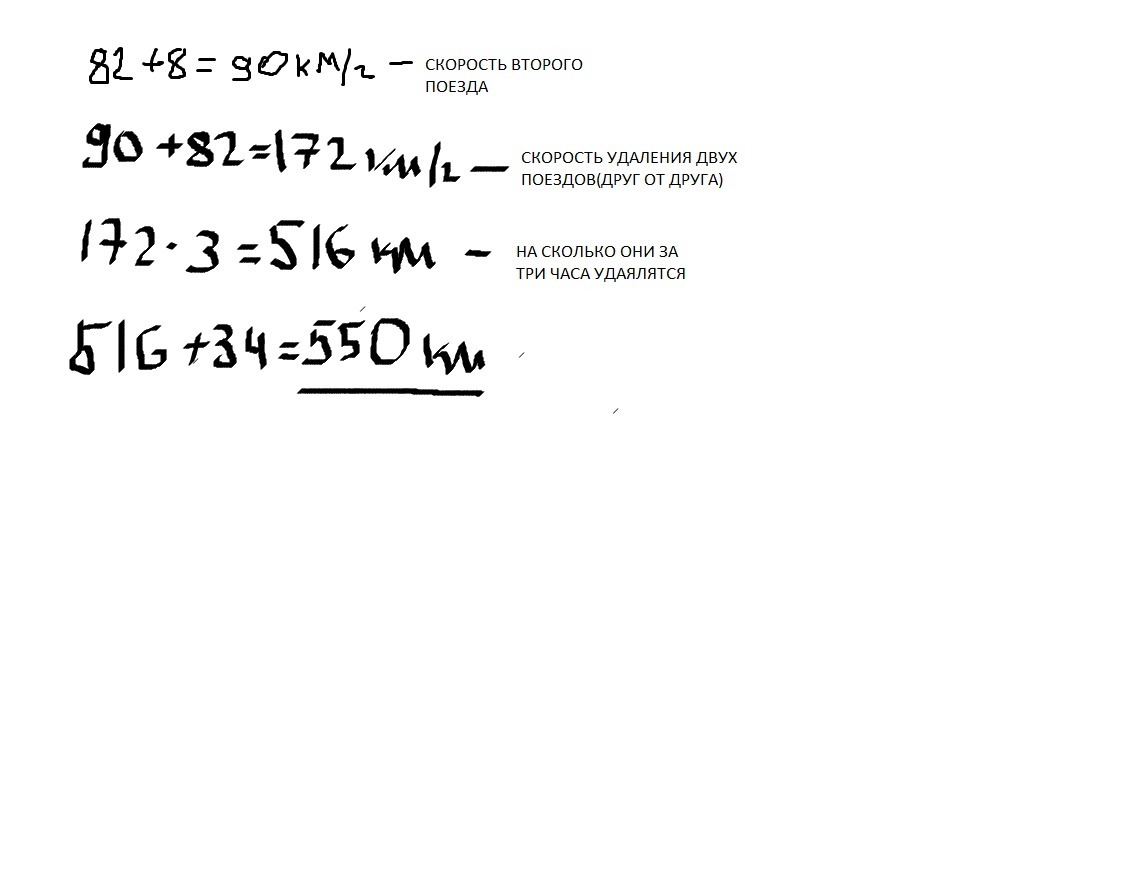 82+8=90км/ч — СКОРОСТЬ ВТОРОГО
ПОЕЗДА
90+82=172км/ч — СКОРОСТЬ УДАЛЕНИЯ ДВУХ
ПОЕЗДОВ(ДРУГ ОТ ДРУГА)
172·3=516 км — НА СКОЛЬКО ОНИ ЗА
ТРИ ЧАСА УДАЯЛЯТСЯ
516+34=550км